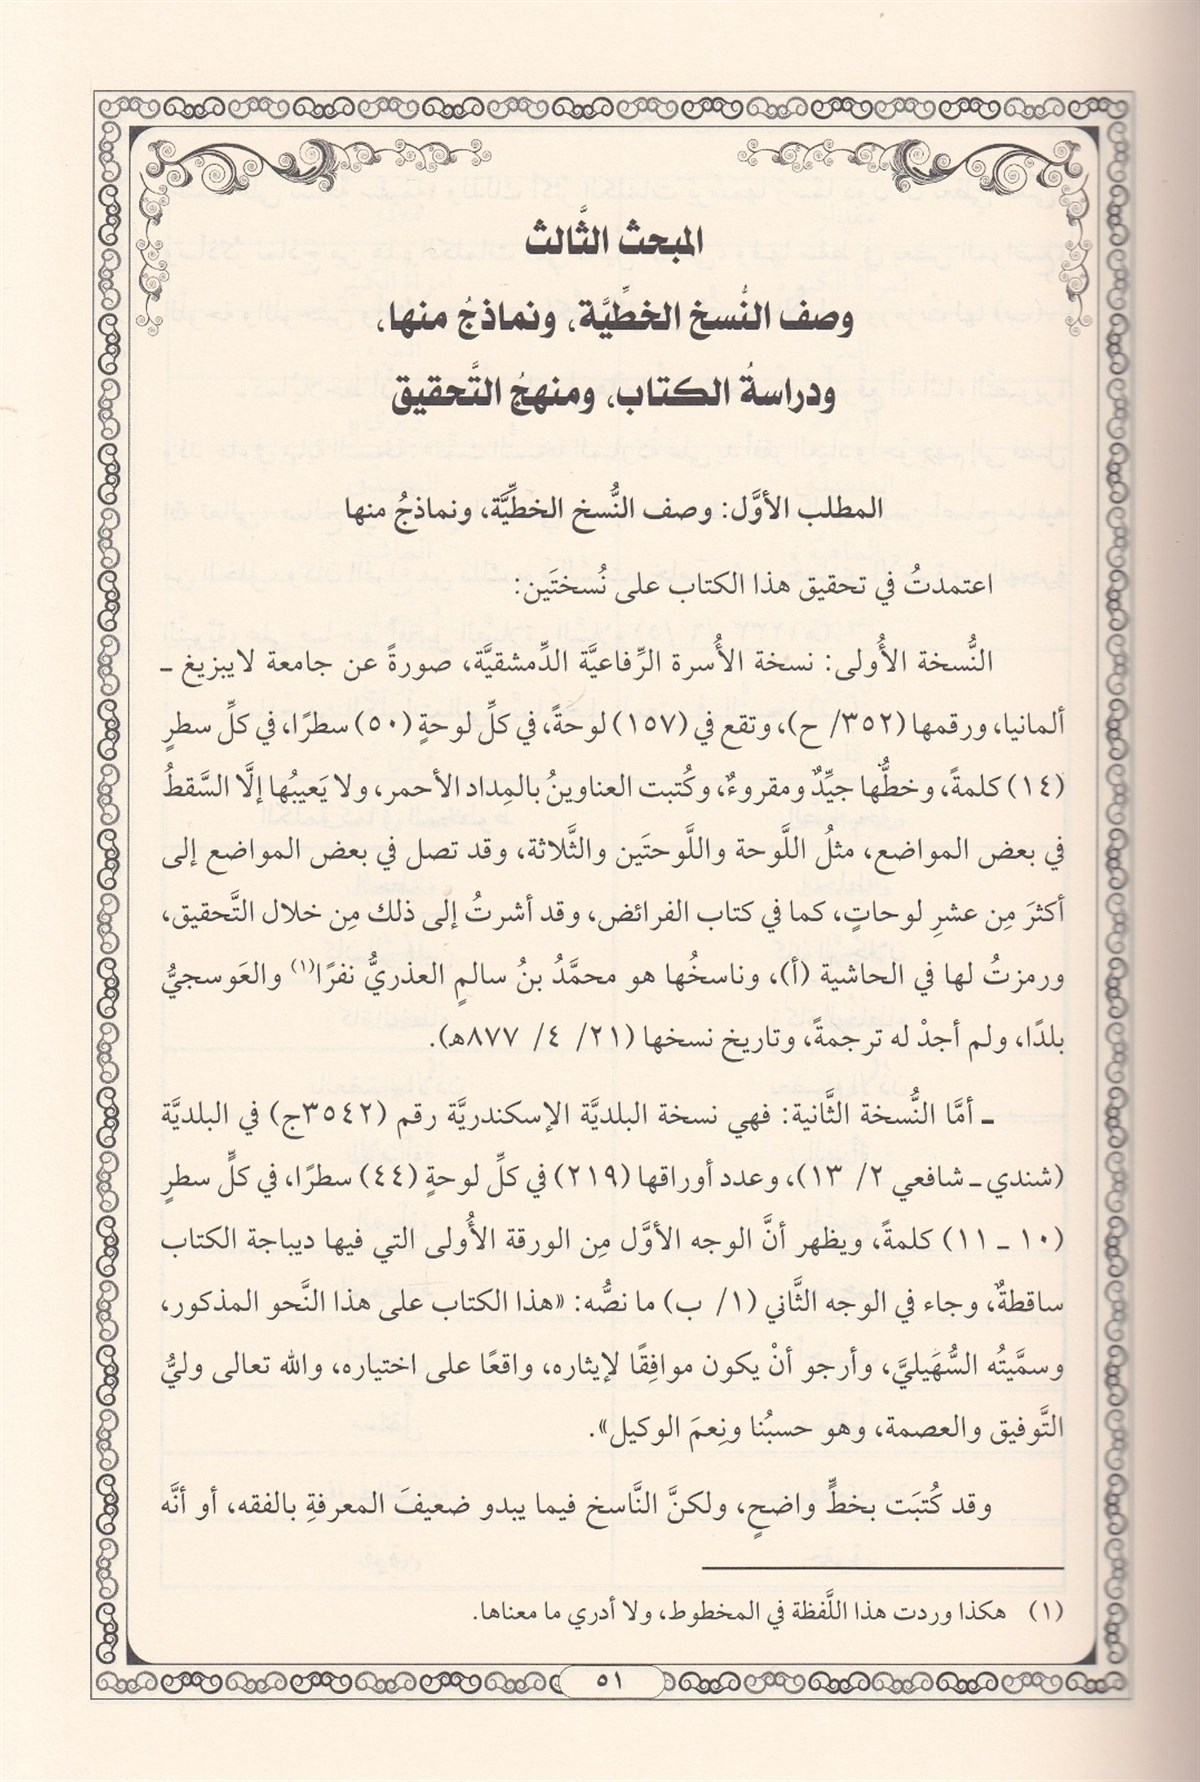 المبحث الثَّالث
وصف النُّسخ الخطِّيَّة، ونماذجُ منها،
ودراسةُ الكتاب، ومنهجُ التَّحقيق
المطلب الأوَّل: وصف النُّسخ الخطيَّة، ونماذجُ منها
اعتمدتُ في تحقيق هذا الكتاب على نُسختَين:
النُّسخة الأُولى: نسخة الأُسرة الرِّفاعيَّة الدِّمشقيَّة، صورةً عن جامعة لايبزيغ ـ
ألمانيا، ورقمها (٣٥٢/ ح)، وتقع في (١٥٧) لوحةً، في كلِّ لوحةٍ (٥٠) سطرًا، في كلِّ سطرٍ
(١٤) كلمةً، وخطُّها جيِّدٌ ومقروءٌ، وكُتبت العناوينُ بالمِداد الأحمر، ولا يَعيبُها إلَّا السَّقطُ
في بعض المواضع، مثلُ اللَّوحة واللَّوحتَين والثَّلاثة، وقد تصل في بعض المواضع إلى
أكثرَ مِن عشرِ لوحاتٍ، كما في كتاب الفرائض، وقد أشرتُ إلى ذلك مِن خلال التَّحقيق،
ورمزتُ لها في الحاشية (أ)، وناسخُها هو محمَّدُ بنُ سالمٍ العذريُّ نفرًا(١) والعَوسجيُّ
بلدًا، ولم أجدْ له ترجمةً، وتاريخ نسخها (٢١/ ٤/ ٨٧٧هـ).
ـ أمَّا النُّسخة الثَّانية: فهي نسخة البلديَّة الإسكندريَّة رقم (٣٥٤٢ج) في البلديَّة
(شندي ـ شافعي ٢/ ١٣)، وعدد أوراقها (٢١٩) في كلِّ لوحةٍ (٤٤) سطرًا، في كلِّ سطرٍ
(١٠ ـ ١١) كلمةً، ويظهر أنَّ الوجه الأوَّل مِن الورقة الأُولى التي فيها ديباجة الكتاب
ساقطةٌ، وجاء في الوجه الثَّاني (١/ ب) ما نصُّه: «هذا الكتاب على هذا النَّحو المذكور،
وسمَّيتُه السُّهَيليَّ، وأرجو أنْ يكون موافِقًا لإيثاره، واقعًا على اختياره، والله تعالى وليُّ
التَّوفيق والعصمة، وهو حسبُنا ونِعمَ الوكيل».
وقد كُتبَت بخطٍّ واضحٍ، ولكنَّ النَّاسخ فيما يبدو ضعيفَ المعرفةِ بالفقه، أو أنَّه
(١) هكذا وردت هذا اللَّفظة في المخطوط، ولا أدري ما معناها.
٥١